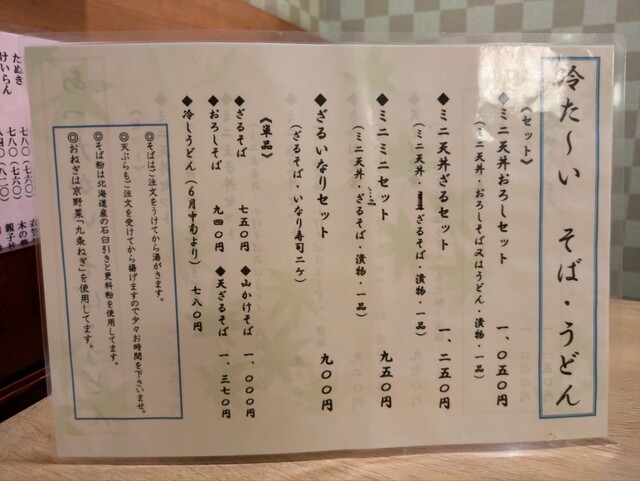 冷た〜い そば・うどん
《セット》
◆ミニ天丼おろしセット 一、〇五〇円
(ミニ天丼・おろしそば又はうどん・漬物・一品)
◆ミニ天丼ざるセット 一、二五〇円
(ミニ天丼・ざるそば・漬物・一品)
◆ミニミニセット 九五〇円
(ミニ天丼・ざるそば・漬物・一品)
◆ざるいなりセット 九〇〇円
(ざるそば・いなり寿司二ケ)
《単品》
◆ざるそば 七五〇円 ◆山かけそば 一、〇〇〇円
◆おろしそば 九四〇円 ◆天ざるそば 一、三七〇円
◆冷しうどん (6月中旬より) 七八〇円
◎そばはご注文をうけてから湯がきます。
◎天ぷらもご注文を受けてから揚げますので少々お時間を下さいませ。
◎そば粉は北海道産の石臼引きと更料粉を使用してます。
◎おねぎは京野菜「九条ねぎ」を使用してます。
たぬき 七八〇(七六〇)
けいらん